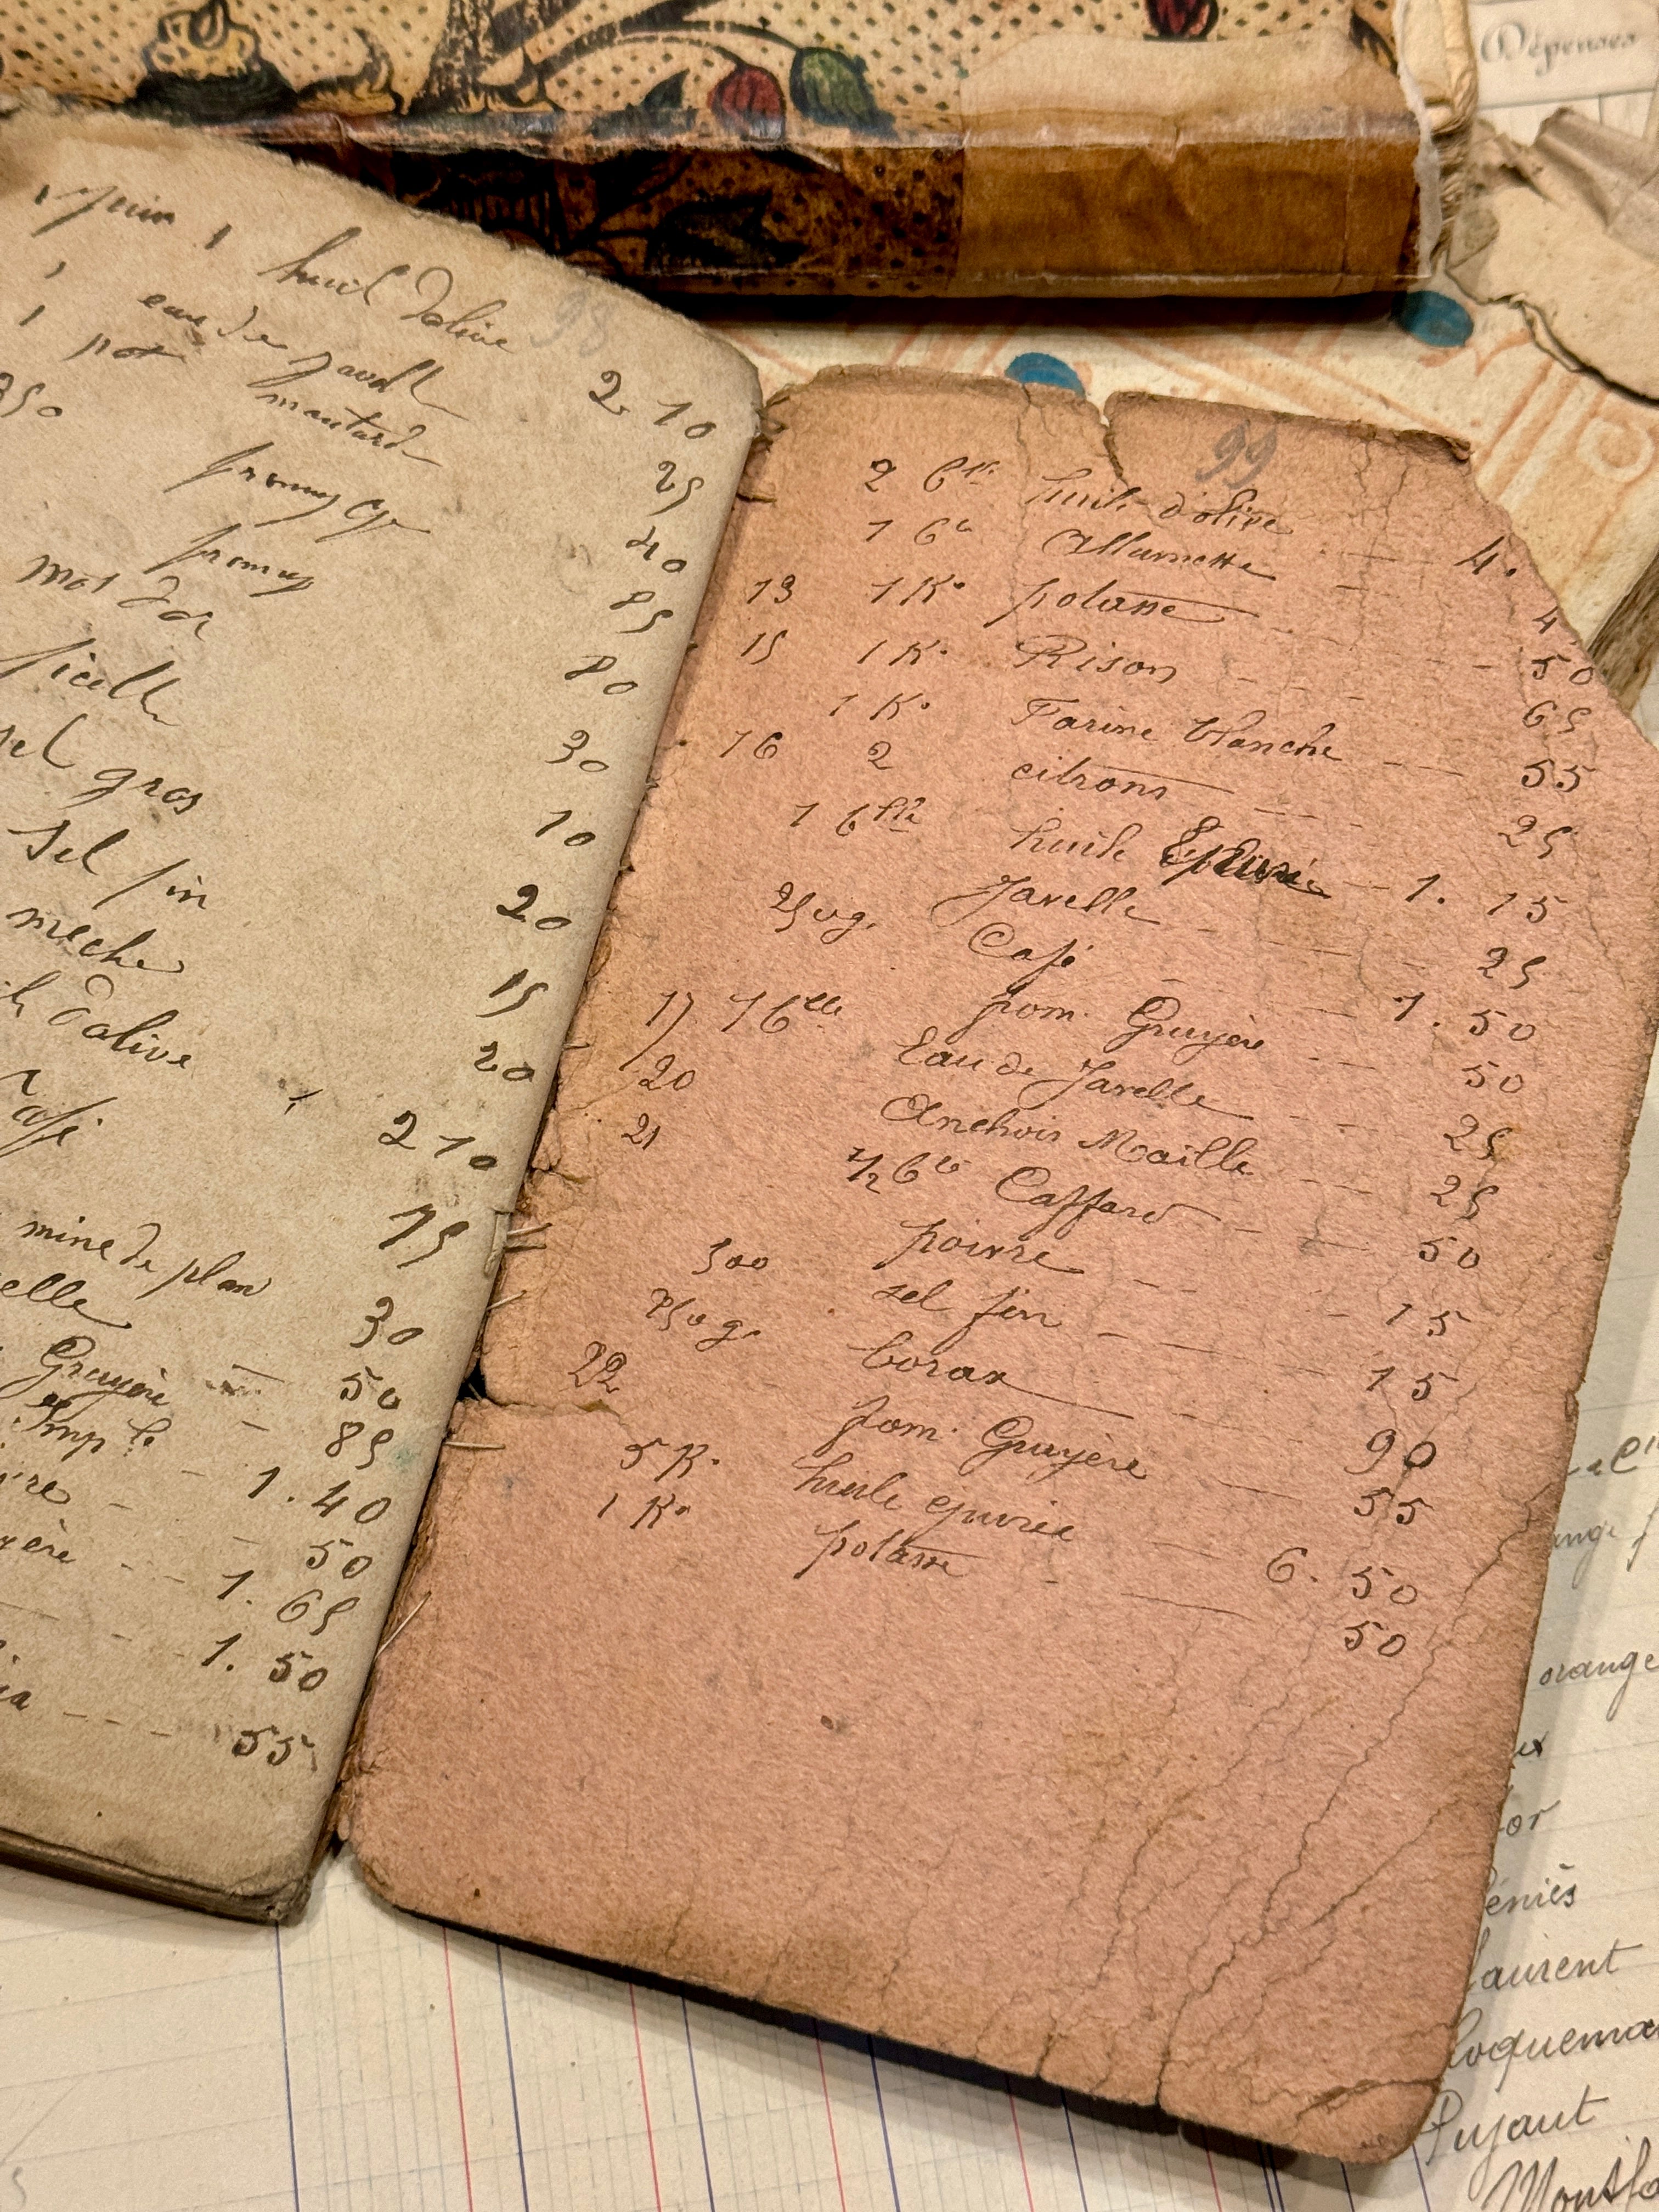 Dépenses
98
1 juin 1 huil dolive 2 10
1 eau de javell 25
1 pot moutard 40
250 fromage 85
fromag 80
mot dor 30
ficelle 10
sel gros 20
Sel fin 15
meche 20
dolive 2 10
Café 75
mine de plan 30
elle 50
Gruyère 85
1.40
50
yère 1.65
1.50
55
99
2 Blle huile d'olive 4.
1 Bte Allumette 4
13 1 K° potasse 50
15 1 K° Rison 65
1 K° Farine blanche 55
16 2 citrons 25
1 Blle huile Epurée 1.15
Javelle 25
250g. Café 1.50
from. Gruyère 50
17 1 Blle Eau de Javelle 25
20 Anchois Maille 25
21 1/2 Bte Caffaro 50
poivre 15
500 sel fin 15
250g. borax 90
22 from. Gruyère 55
5 K° huile epurée 6.50
1 K° potasse 50
orange
Laurent
Pujaut